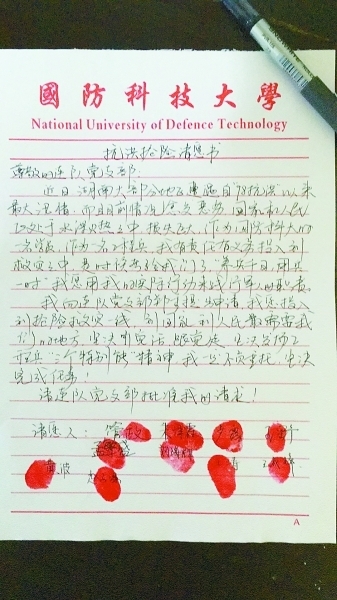 國防科技大學
National University of Defence Technology
抗洪抢险请愿书
尊敬的连队党支部：
近日湖南大部分地区遭遇自98抗洪以来
最大汛情，而且目前情况愈发恶劣，国家和人民
正处于水深火热之中，损失巨大，作为国防科大的
一名学员，作为一名军人，我有责任有义务投入到
救灾之中，是时候该我们了，“养兵千日，用兵
一时”，我愿用我的实际行动来践行军人的职责。
我向连队党支部郑重提出申请，我愿投入
到抢险救灾一线，到国家和人民最需要我
们的地方，坚决听党话，跟党走，坚决发扬工
程兵“三个特别能”精神，我一定不负重托，坚决
完成任务！
请连队党支部批准我的请求！
请愿人：
A